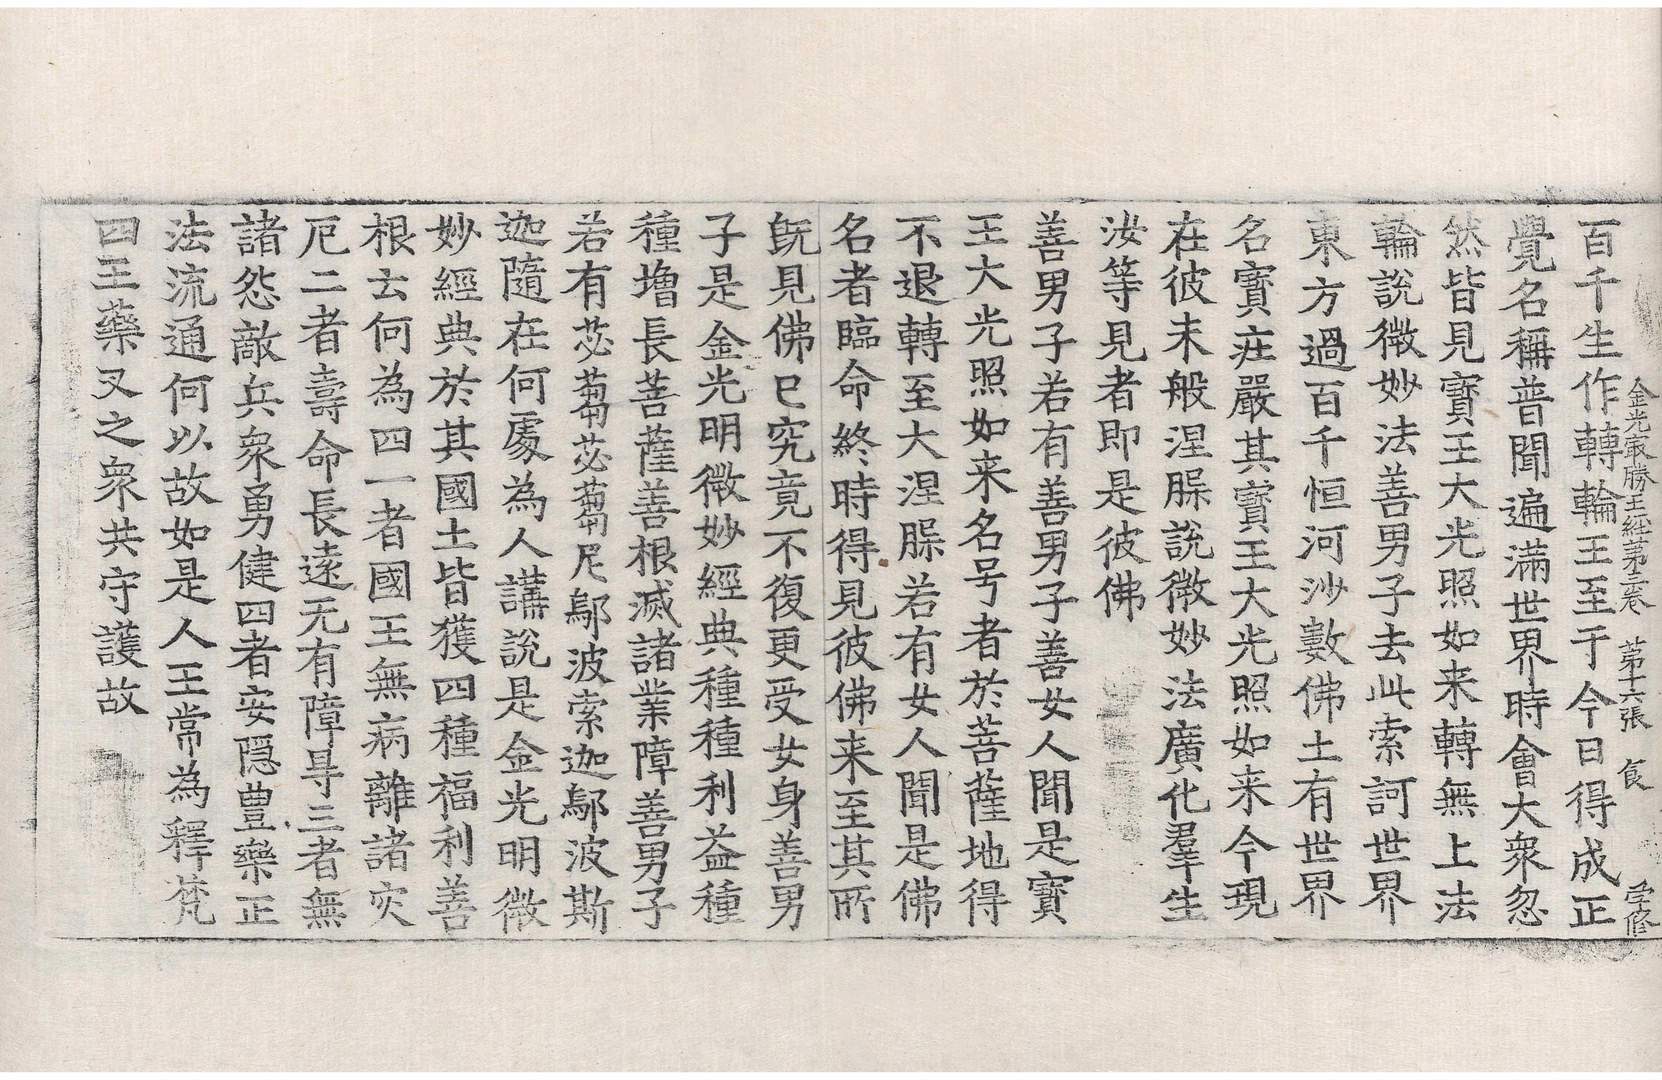 金光最勝王經第三卷 第十六張 食 学修
百千生作轉輪王至于今日得成正
覺名稱普聞遍滿世界時會大衆忽
然皆見寶王大光照如来轉無上法
輪說微妙法善男子去此索訶世界
東方過百千恒河沙數佛土有世界
名寶庄嚴其寶王大光照如来今現
在彼未般涅槃說微妙法廣化羣生
汝等見者即是彼佛
善男子若有善男子善女人聞是寶
王大光照如来名号者於菩薩地得
不退轉至大涅槃若有女人聞是佛
名者臨命終時得見彼佛来至其所
旣見佛已究竟不復更受女身善男
子是金光明微妙經典種種利益種
種增長菩薩善根滅諸業障善男子
若有苾蒭苾蒭尼鄔波索迦鄔波斯
迦隨在何處為人講說是金光明微
妙經典於其國土皆獲四種福利善
根云何為四一者國王無病離諸灾
厄二者壽命長遠无有障㝵三者無
諸怨敵兵衆勇健四者安隱豊樂正
法流通何以故如是人王常為釋梵
四王藥叉之衆共守護故